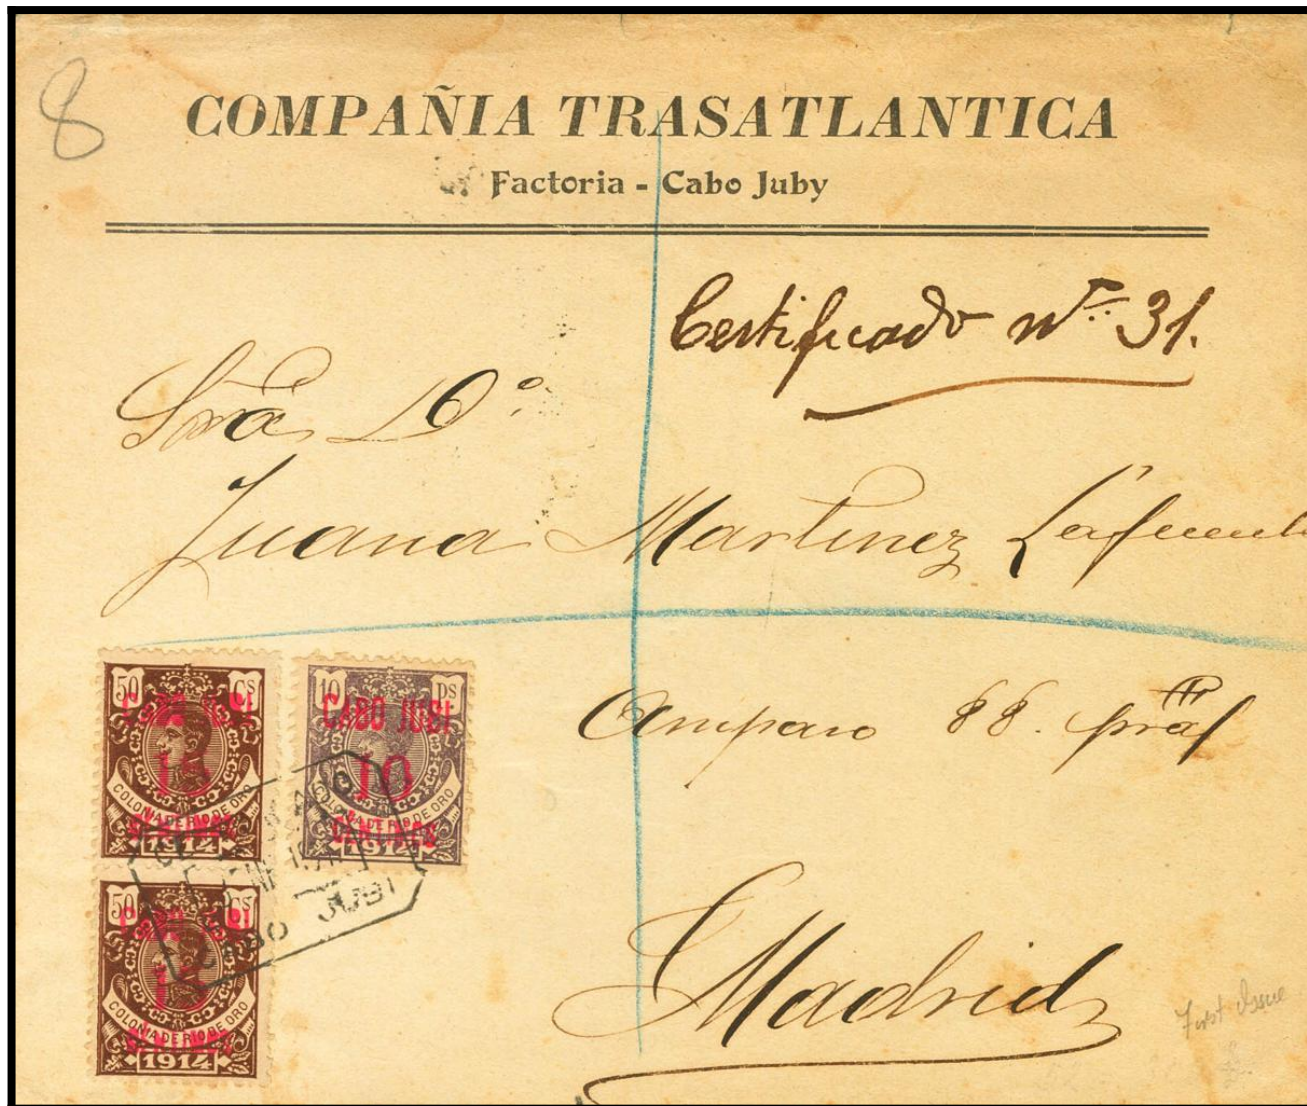 8
COMPAÑIA TRASATLANTICA
Factoria - Cabo Juby
Certificado nº 31.
Sra Dª
Juana Martinez Lafuente
Amparo 88. pral
Madrid
First Issue
50 Cs
COLONIA DE RIO DE ORO
1914
10 Ps
CABO JUBI
10
CENTIMOS
COLONIA DE RIO DE ORO
1914
50 Cs
COLONIA DE RIO DE ORO
1914
CABO JUBI